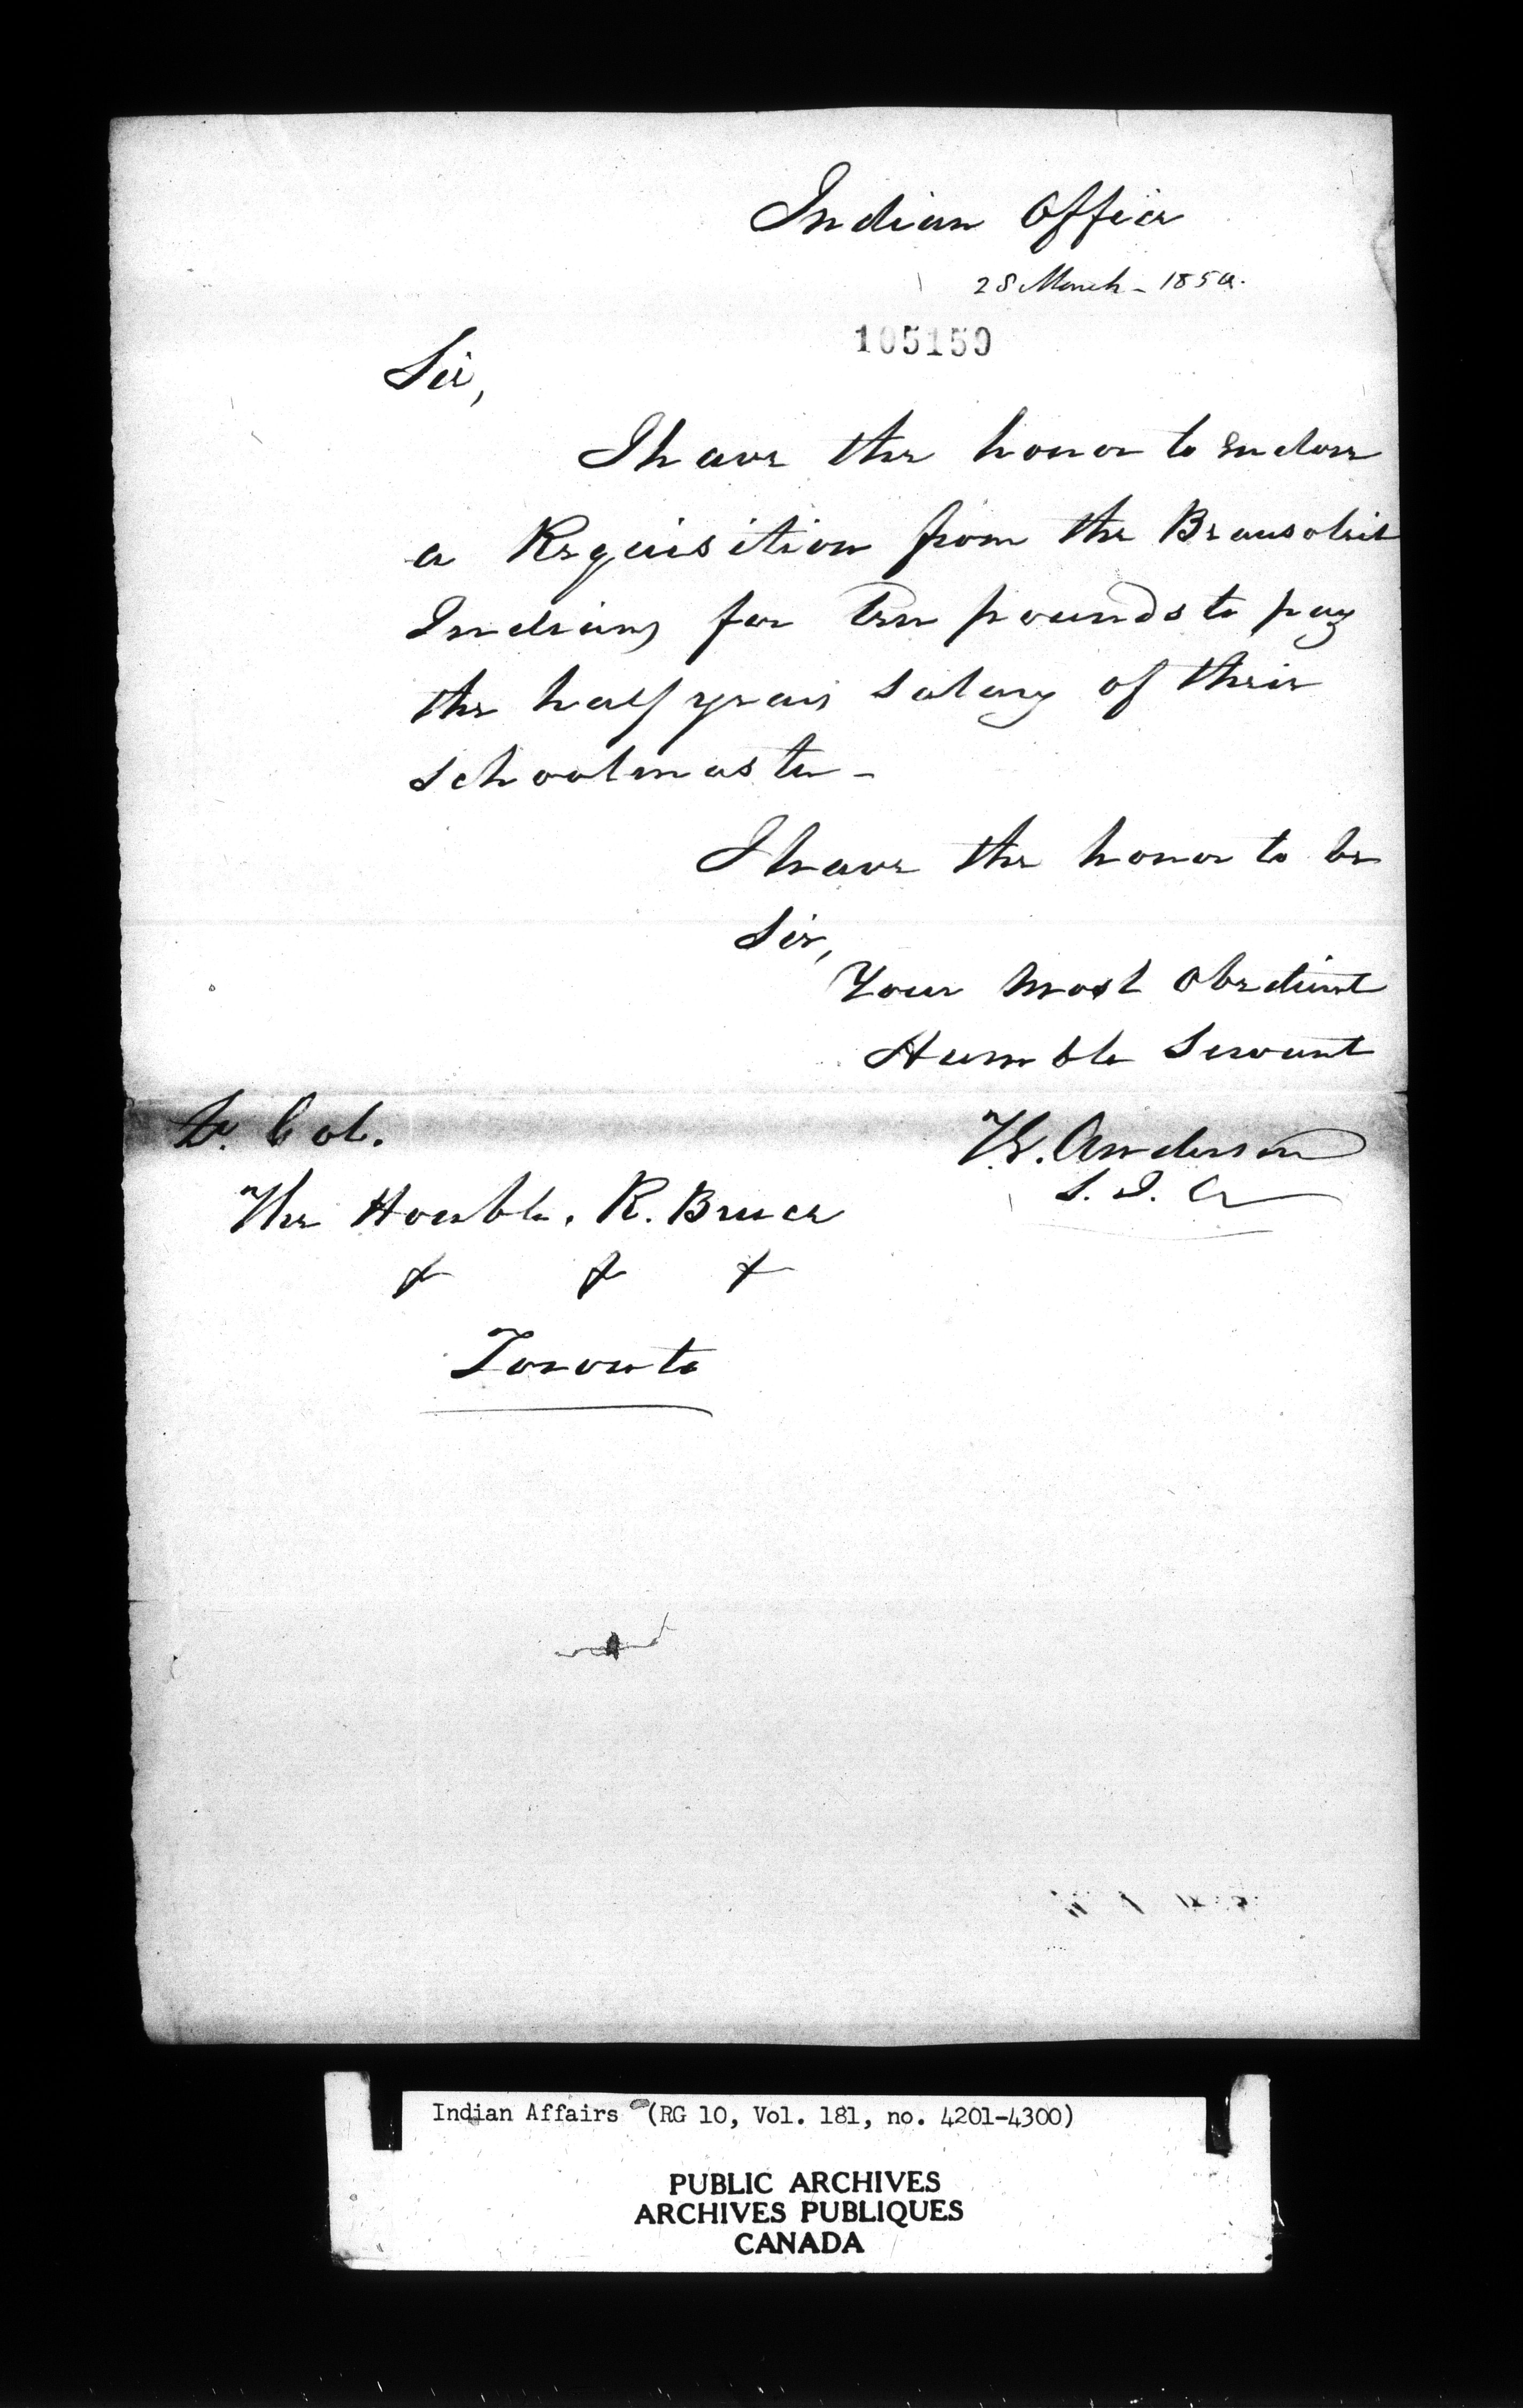 Indian Office
28 March - 1850.
105150
Sir,
I have the honor to enclose
a Requisition from the Beausoleil
Indians for Ten pounds to pay
the half years salary of their
schoolmaster -
I have the honor to be
Sir,
Your most obedient
Humble Servant
Lt. Col.
T.G. Anderson
S. I. A
The Honble. R. Bruce
& & &
Toronto
Indian Affairs (RG 10, Vol. 181, no. 4201-4300)
PUBLIC ARCHIVES
ARCHIVES PUBLIQUES
CANADA